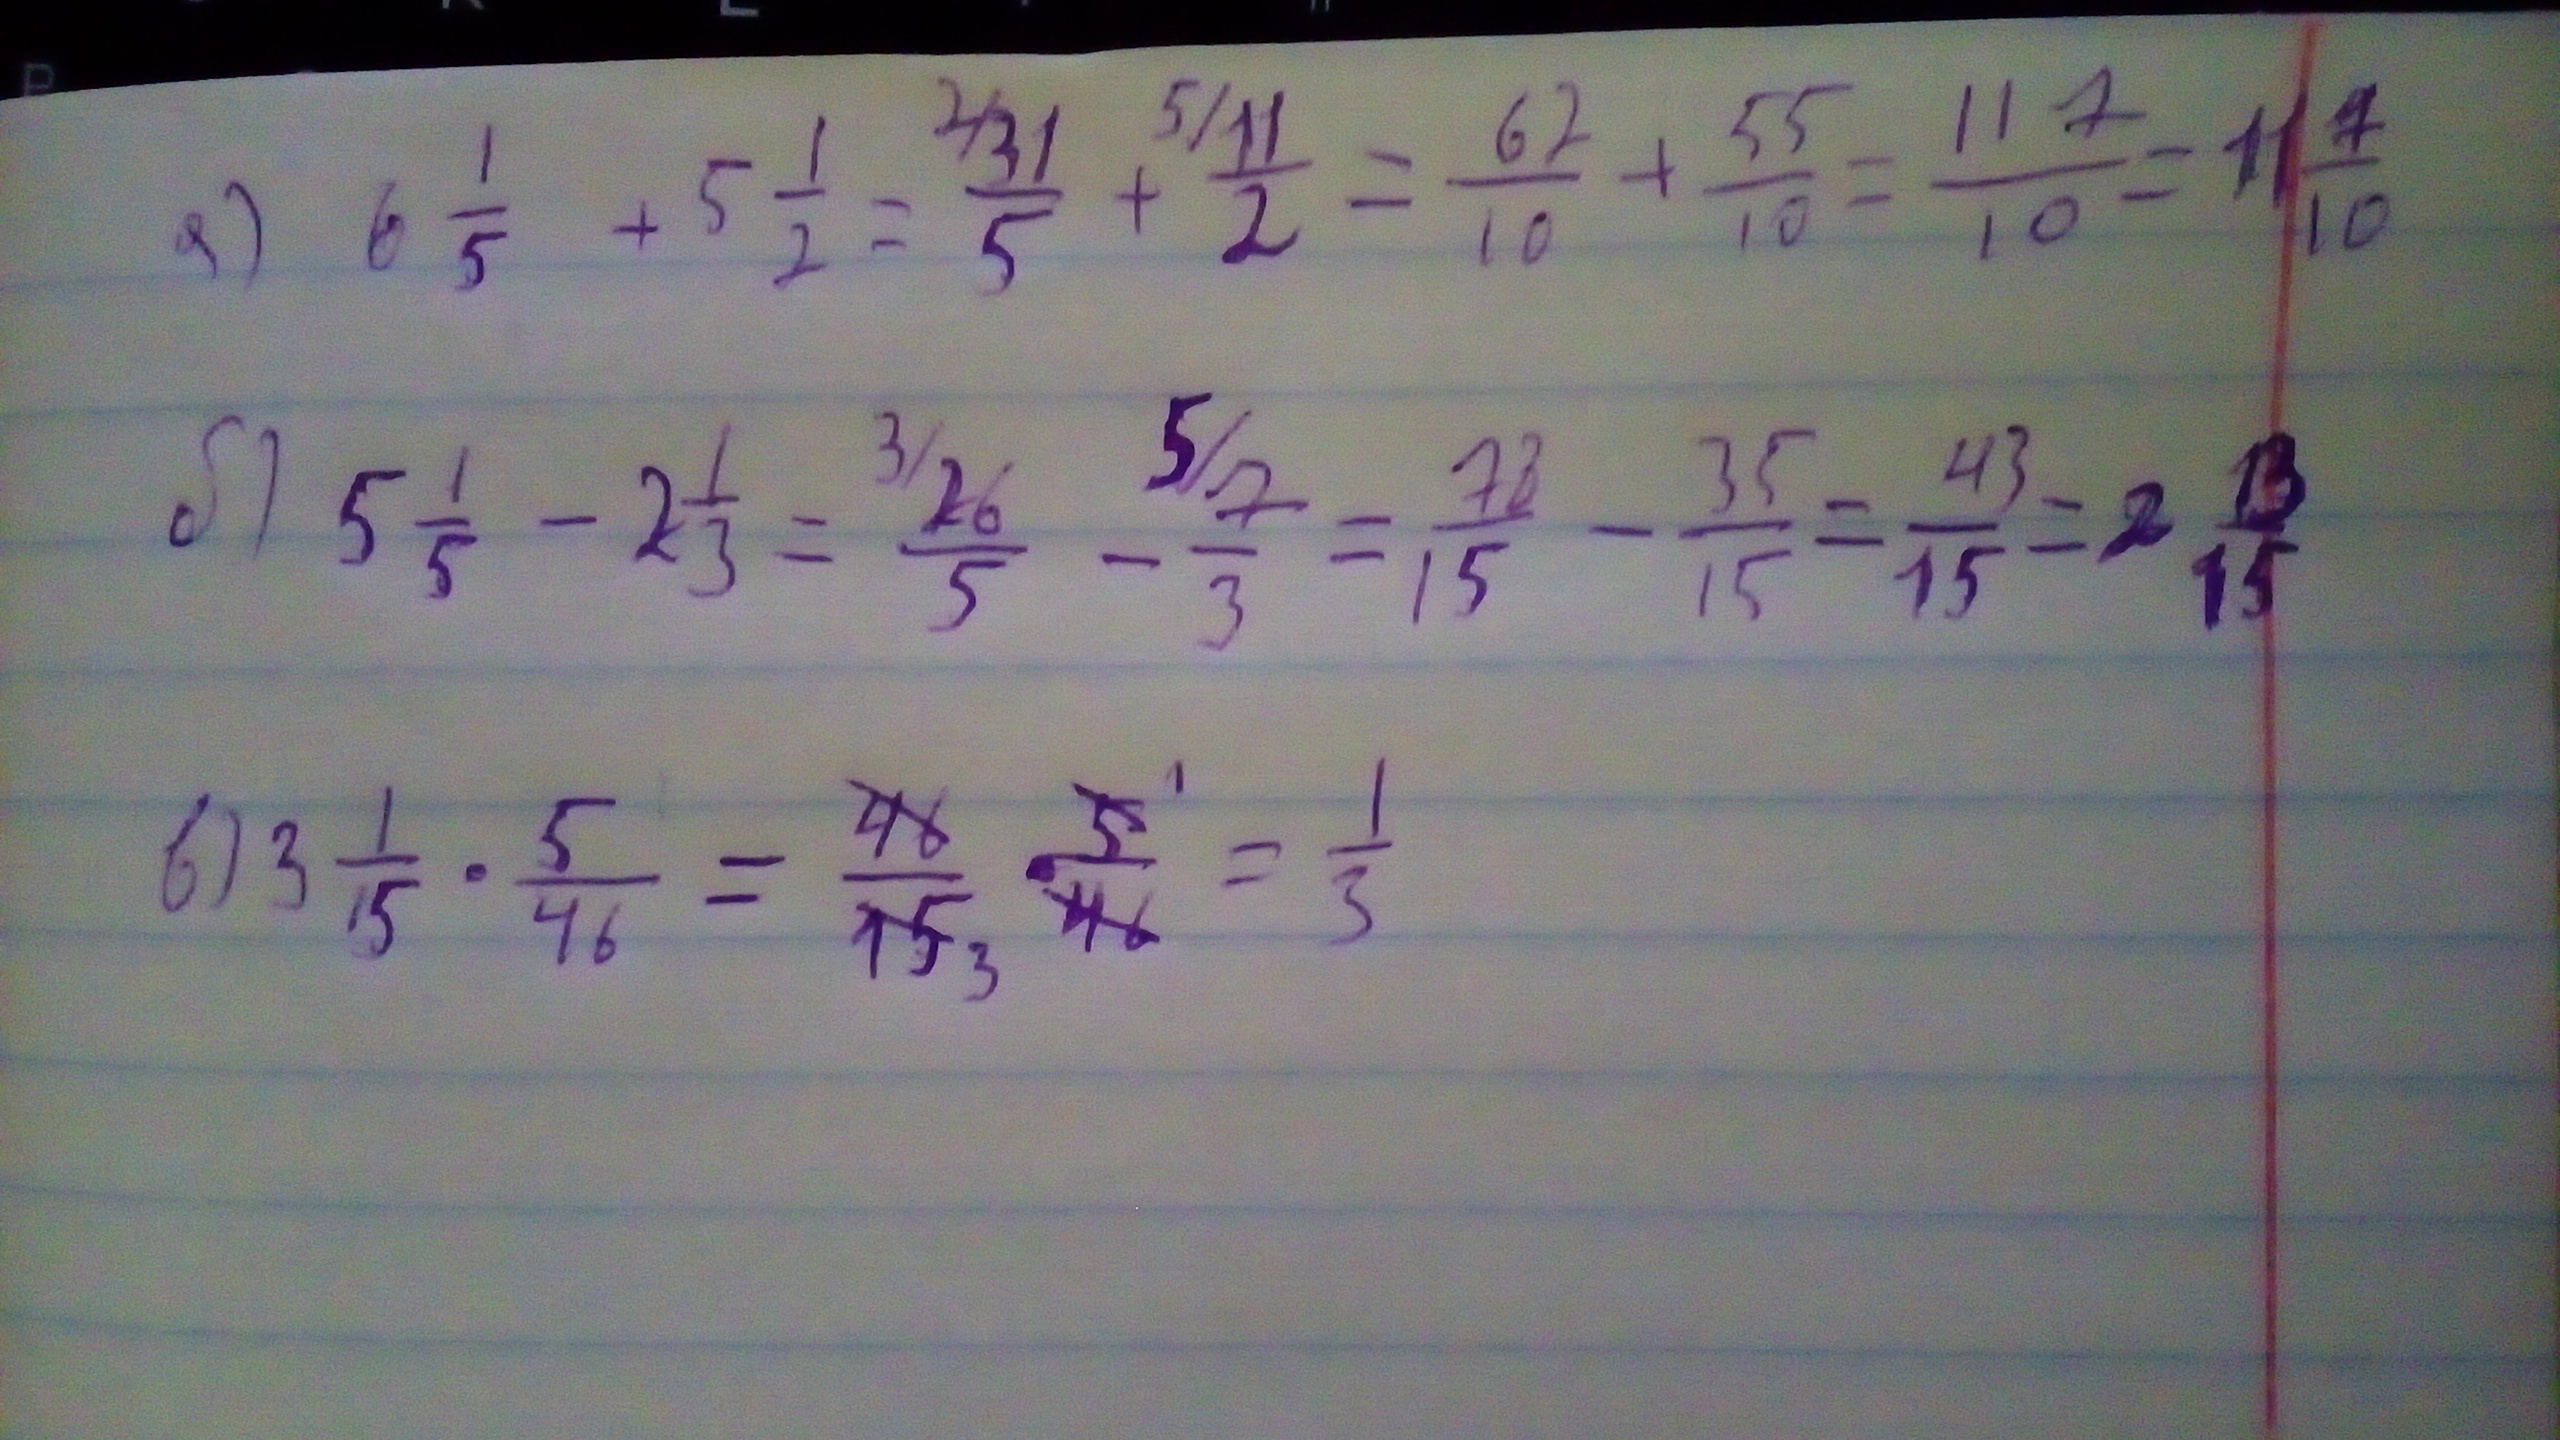 а) 6 1/5 + 5 1/2 = 2/ 31/5 + 5/ 11/2 = 62/10 + 55/10 = 117/10 = 11 7/10
б) 5 1/5 - 2 1/3 = 3/ 26/5 - 5/ 7/3 = 78/15 - 35/15 = 43/15 = 2 13/15
в) 3 1/15 · 5/46 = 46/15 3 · 5/46 1 = 1/3